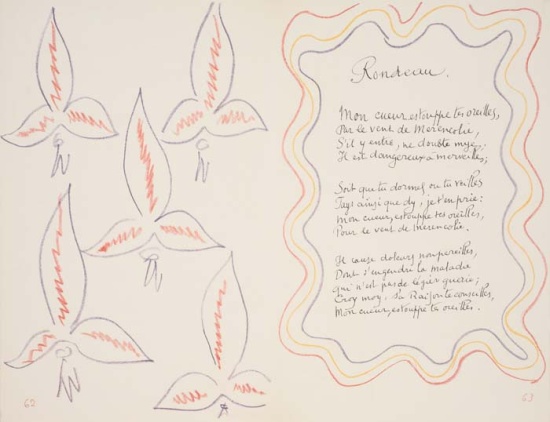 Rondeau.
Mon cueur estouppe tes oreilles,
Pour le vent de Merencolie,
S'il y entre, ne doubte mye,
Il est dangereux à merveilles;
Soit que tu dormes ou tu veilles
Fays ainsi que dy, je t'en prie:
Mon cueur, estouppe tes oreilles,
Pour le vent de Merencolie.
Il cause doleurs nonpareilles,
Dont s'engendre la maladie
Qui n'est pas de legier guerie;
Croy moy, s'a Raison te conseilles,
Mon cueur, estouppe tes oreilles.
62
63